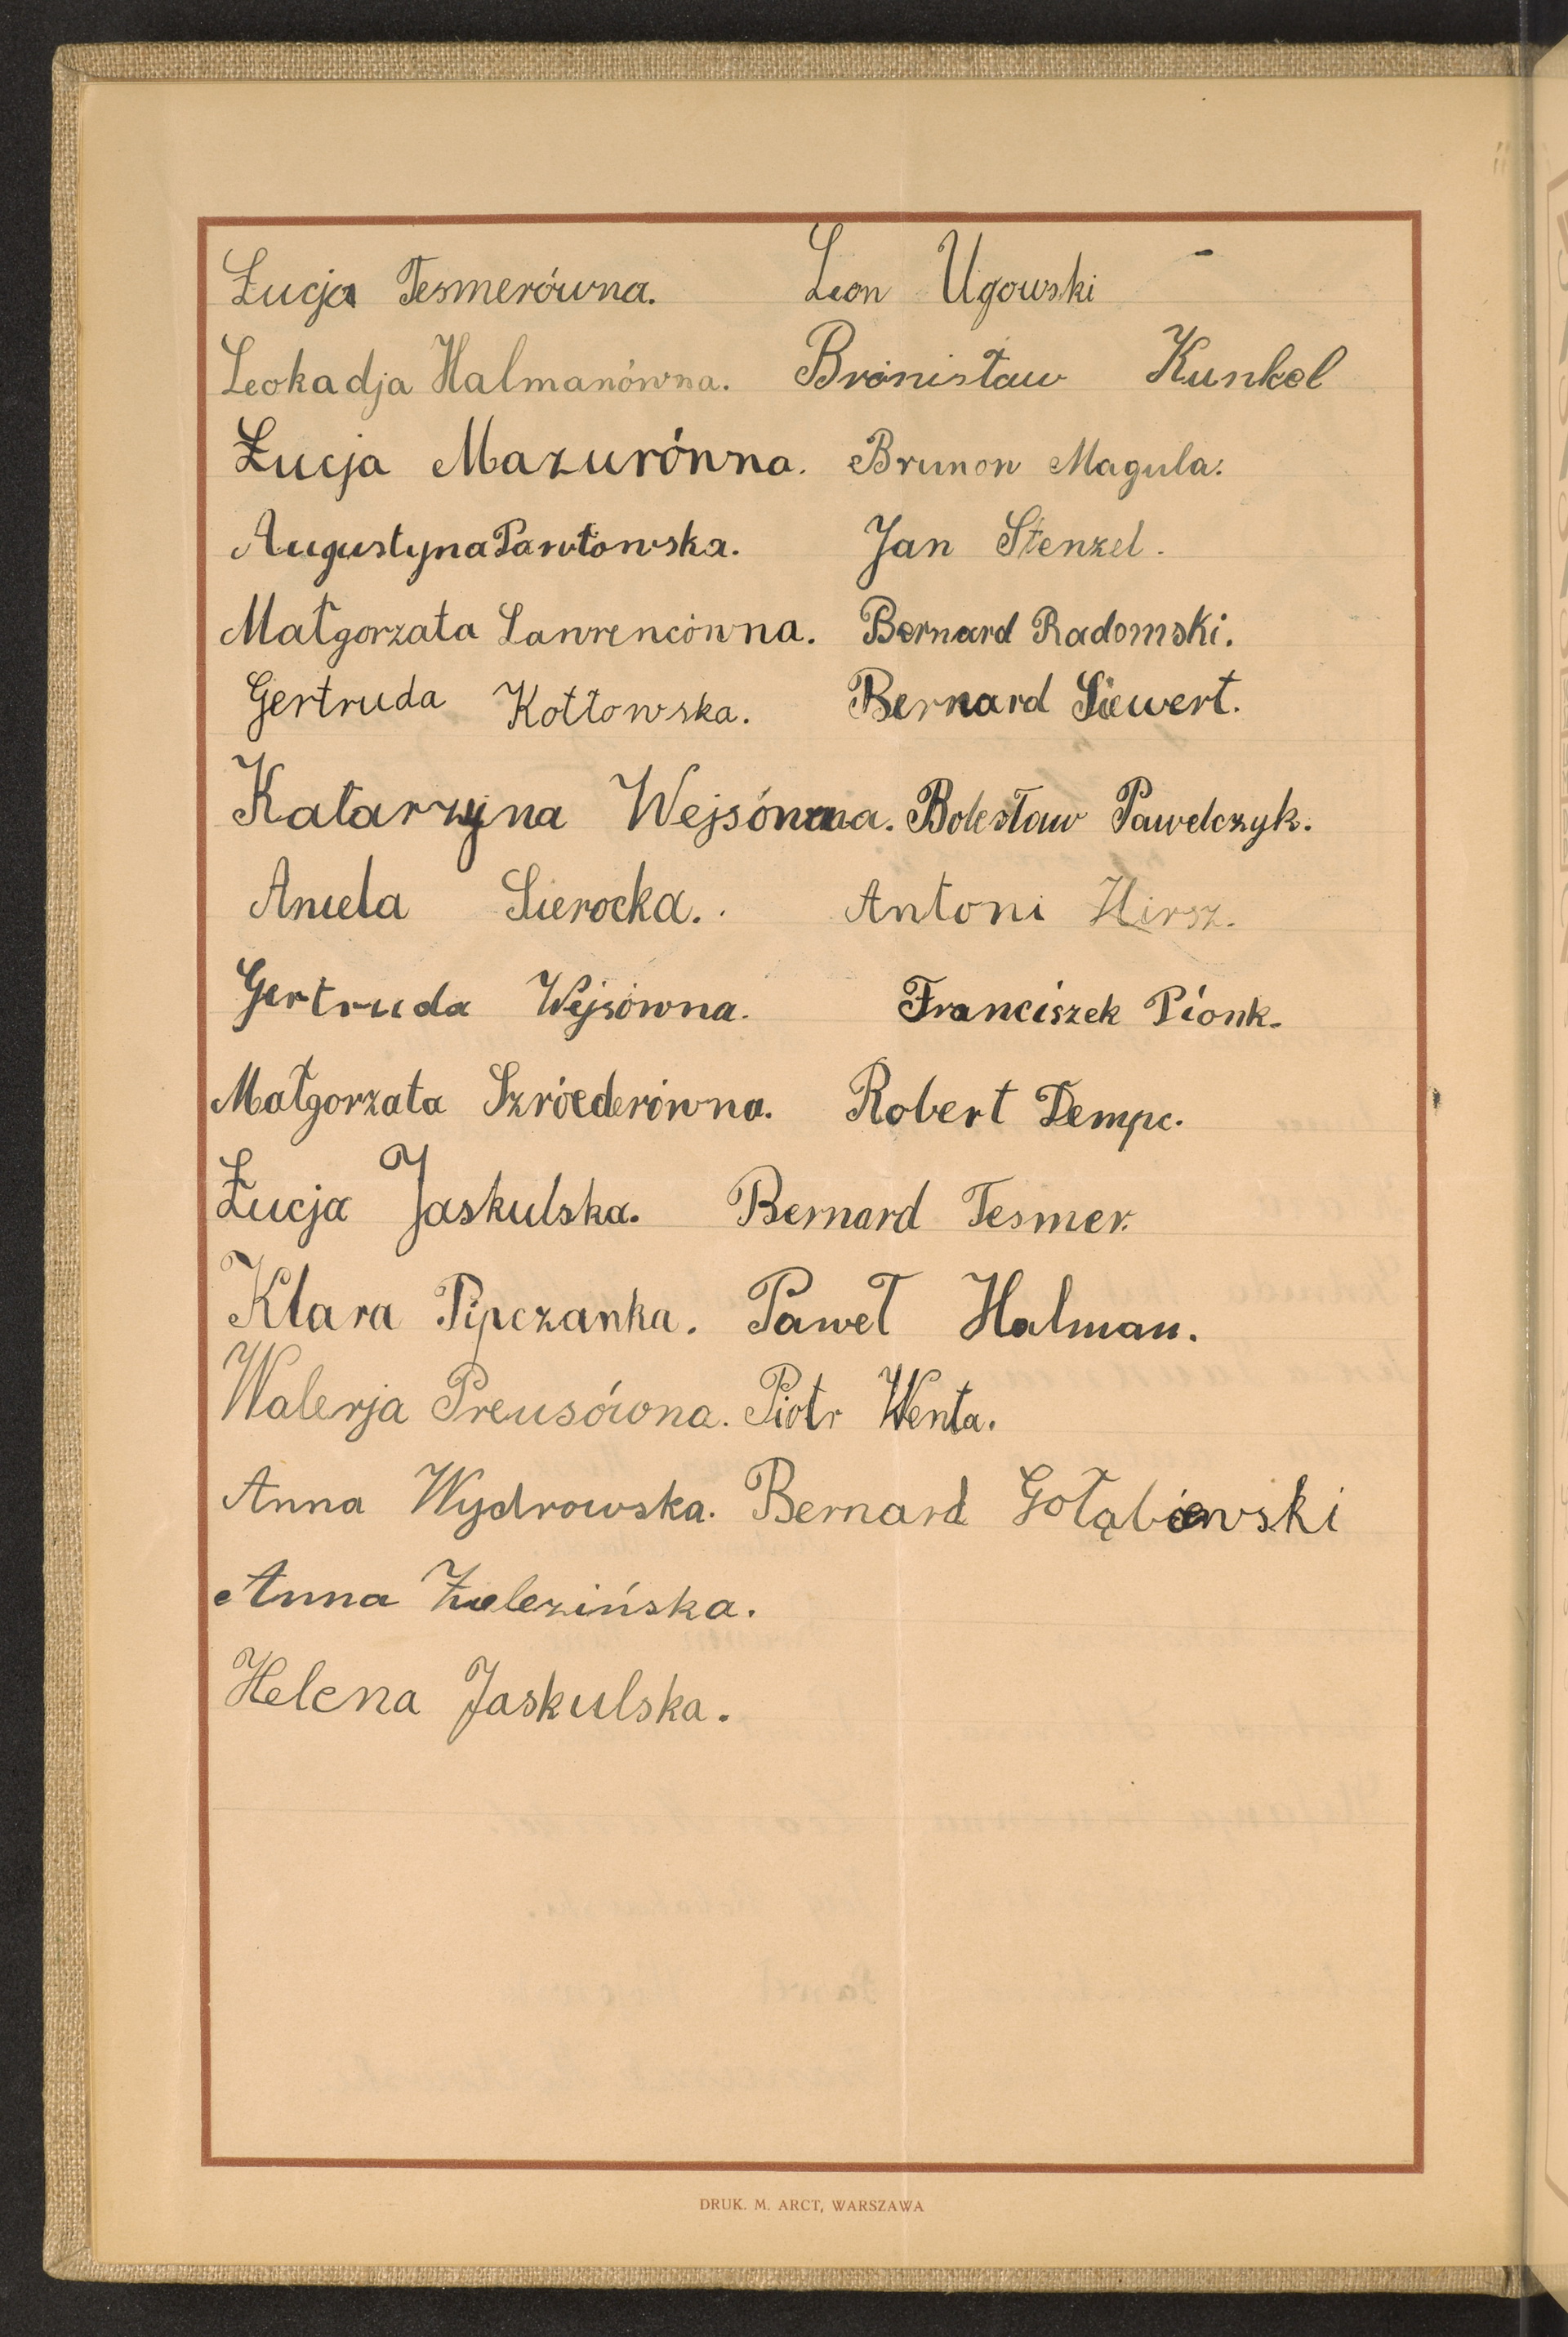 Łucja Tesmerówna. Leon Ugowski
Leokadja Halmanówna. Bronisław Kunkel
Łucja Mazurówna. Brunon Magula.
Augustyna Pawłowska. Jan Stenzel.
Małgorzata Lawrencówna. Bernard Radomski.
Gertruda Kotłowska. Bernard Siewert.
Katarzyna Wejsówna. Bolesław Pawelczyk.
Aniela Sierocka. Antoni Hirsz.
Gertruda Wejsówna. Franciszek Pionk.
Małgorzata Szróederówna. Robert Dempc.
Łucja Jaskulska. Bernard Tesmer.
Klara Pipczanka. Paweł Halman.
Walerja Preusówna. Piotr Wenta.
Anna Wydrowska. Bernard Gołąbiewski
Anna Zielezińska.
Helena Jaskulska.
DRUK. M. ARCT, WARSZAWA